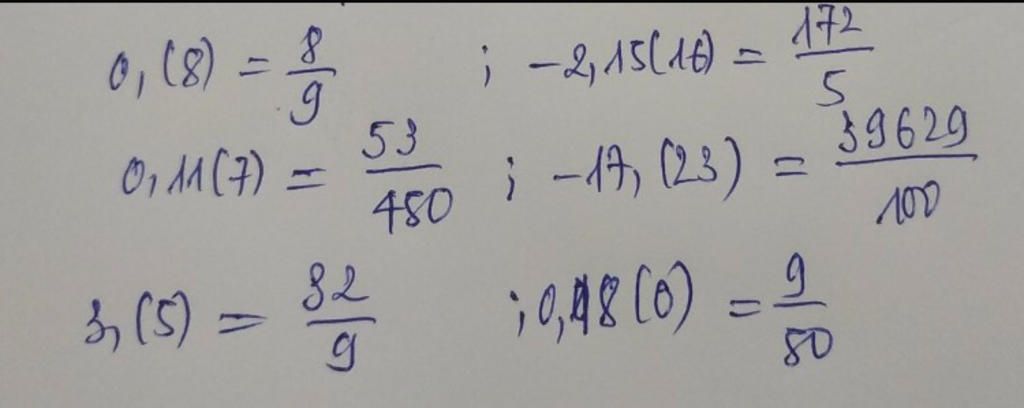 0,(8) = 8/9 ; -2,15(16) = 172/5
0,11(7) = 53/450 ; -17,(23) = 39629/100
3,(5) = 32/9 ; 0,18(0) = 9/50